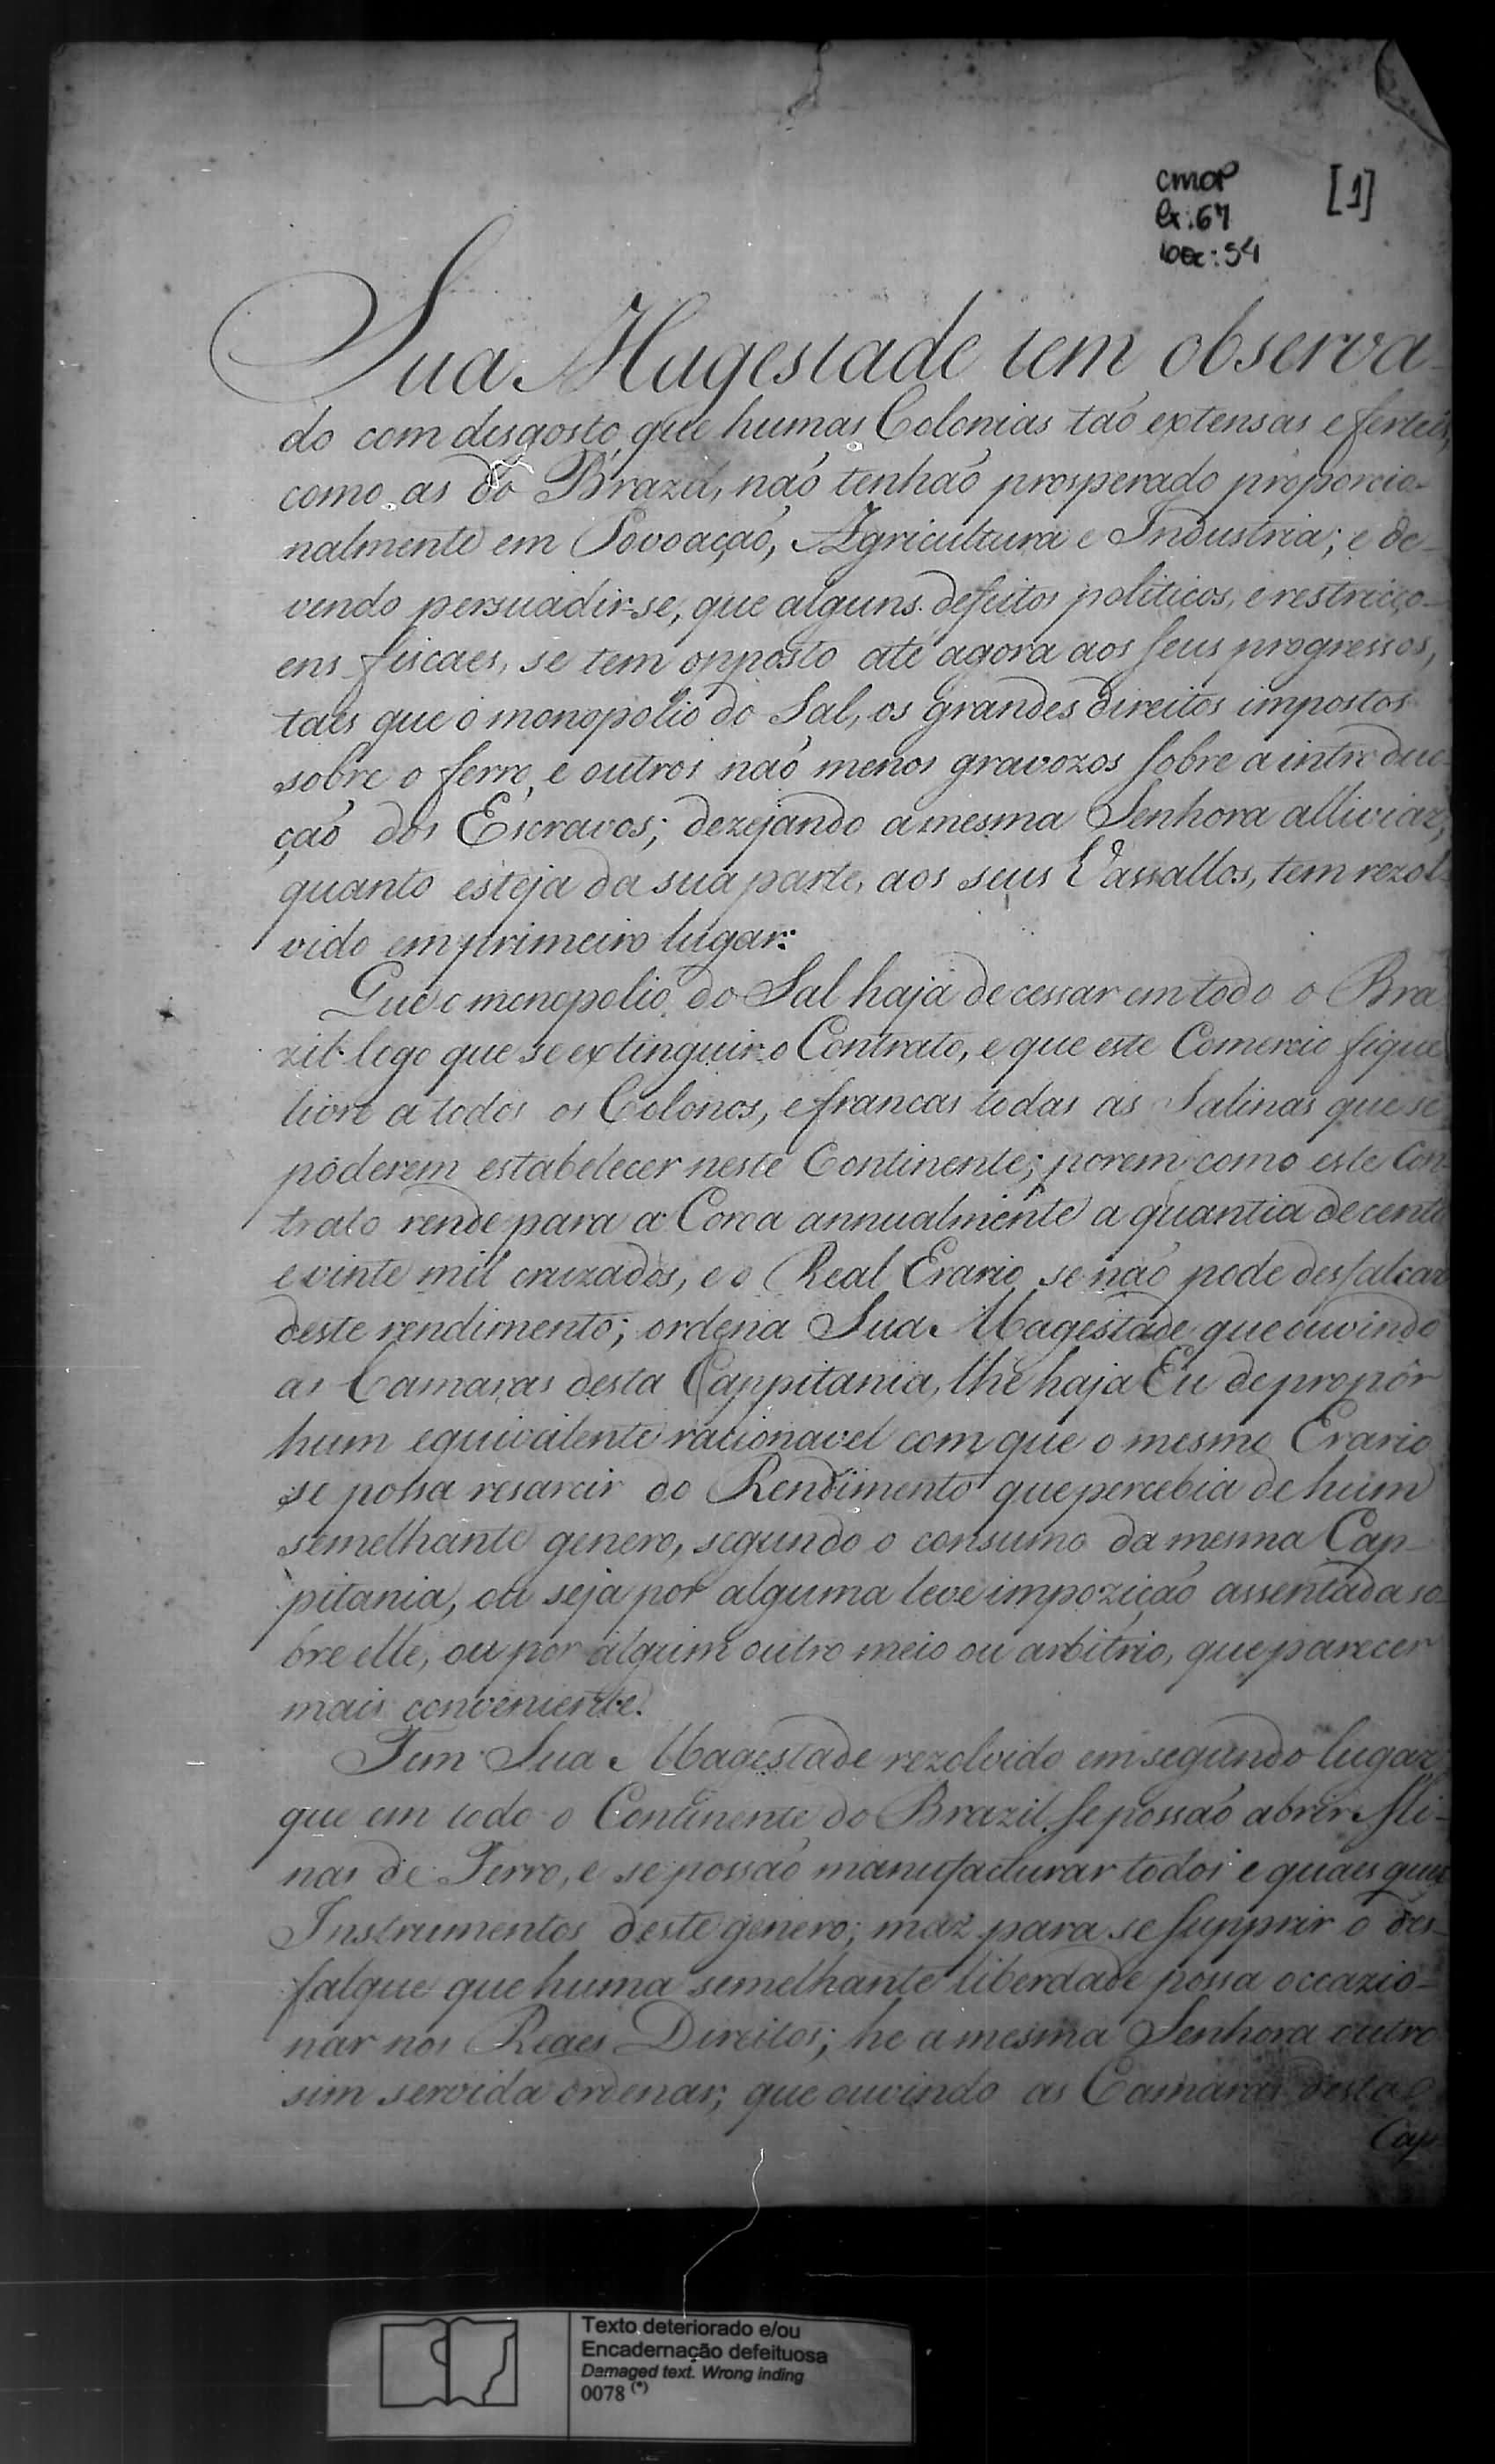 cmop [1]
cx: 67
Doc: 54
Sua Magestade tem observa-
do com desgosto, que humas Colonias taõ extensas e ferteis,
como as do Brazil, naõ tenhaõ prosperado proporcio-
nalmente em Povoaçaõ, Agricultura e Industria; e de-
vendo persuadir-se, que alguns defeitos politicos, e restricço-
ens fiscaes, se tem opposto até agora aos seus progressos,
taes que o monopolio do Sal, os grandes direitos impostos
sobre o ferro, e outros naõ menos gravozos sobre a introduc-
çaõ dos Escravos; dezejando a mesma Senhora alliviar,
quanto esteja da sua parte, aos seus Vassallos, tem rezol-
vido em primeiro lugar:
Que o monopolio do Sal haja de cessar em todo o Bra
zil logo que se extinguir o Contrato, e que este Comercio fique
livre a todos os Colonos, e francas todas as Salinas que se
poderem estabelecer neste Continente; porem como este Con-
trato rende para a Coroa annualmente a quantia de cento
e vinte mil cruzados, e o Real Erario se naõ pode desfalcar
deste rendimento; ordena Sua Magestade que ouvindo
as Camaras desta Cappitania, lhe haja Eu de propôr
hum equivalente racionavel com que o mesmo Erario
se possa resarcir do Rendimento que percebia de hum
semelhante genero, segundo o consumo da mesma Cap-
pitania, ou seja por alguma leve impoziçaõ assentada so-
bre elle, ou por algum outro meio ou arbitrio, que parecer
mais conveniente.
Tem Sua Magestade rezolvido em segundo lugar,
que em todo o Continente do Brazil se possaõ abrir Mi-
nas de Ferro, e se possaõ manufacturar todos e quaes quer
Instrumentos deste genero; maz para se supprir o des-
falque que huma semelhante liberdade possa occazio-
nar nos Reaes Direitos; he a mesma Senhora outro
sim servida ordenar; que ouvindo as Camaras desta
Cap
Texto deteriorado e/ou
Encadernação defeituosa
Damaged text. Wrong inding
0078 (*)